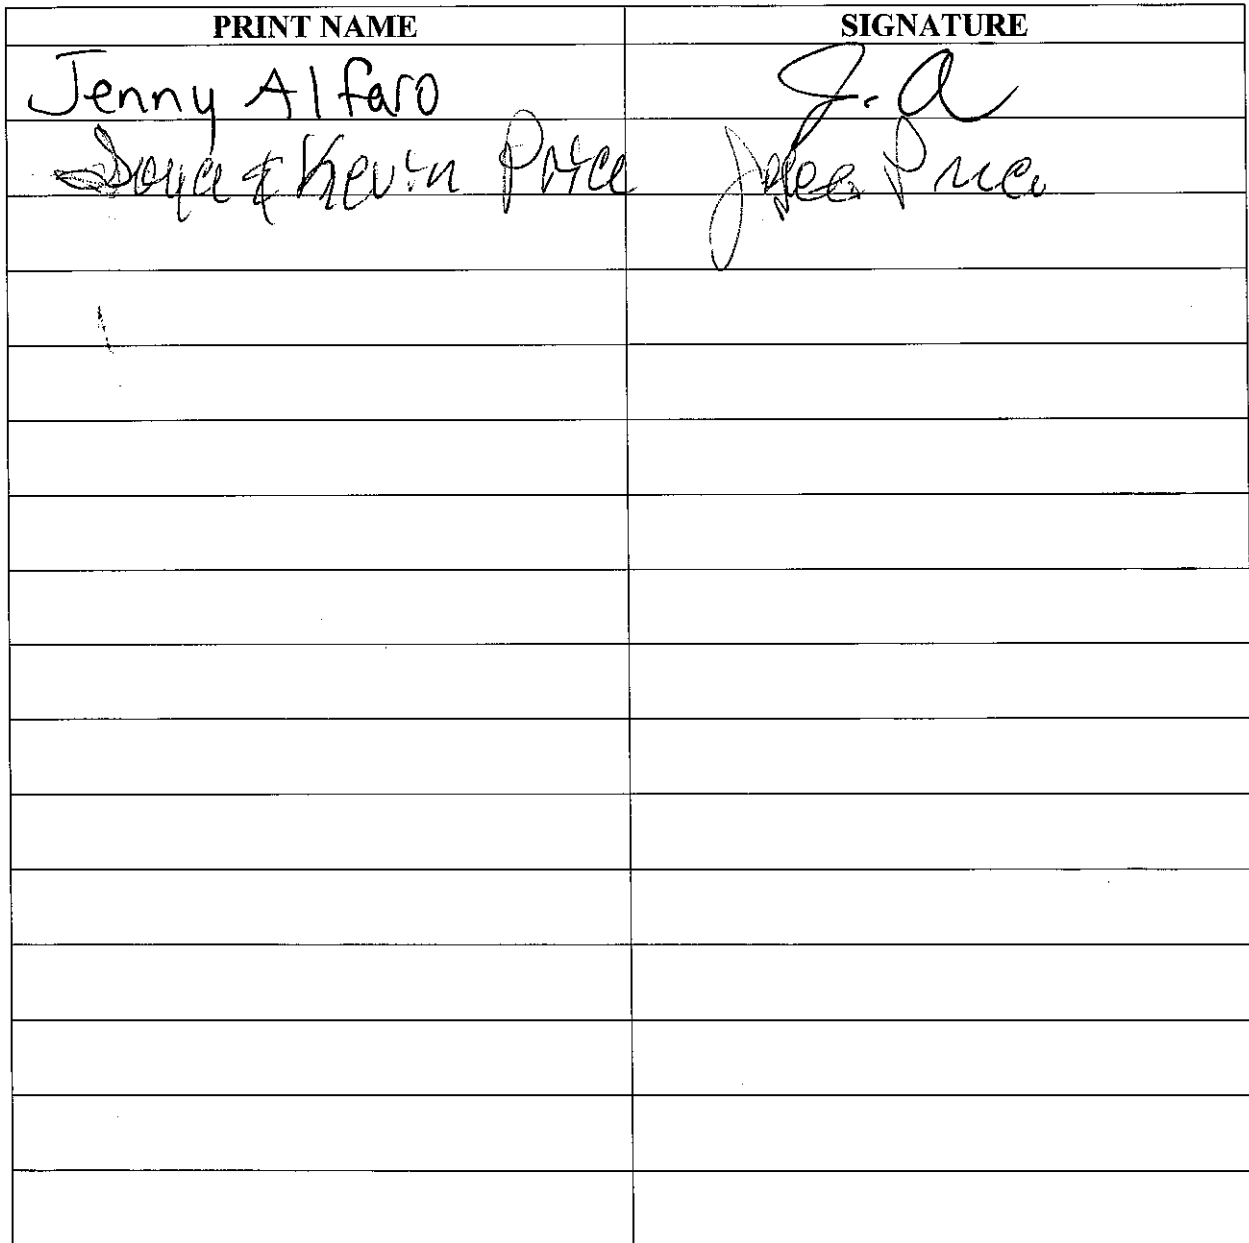 PRINT NAME SIGNATURE
Jenny Alfaro J. A
& Kevin Price Price